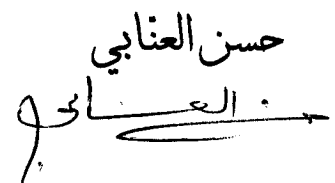 حسن العنابي